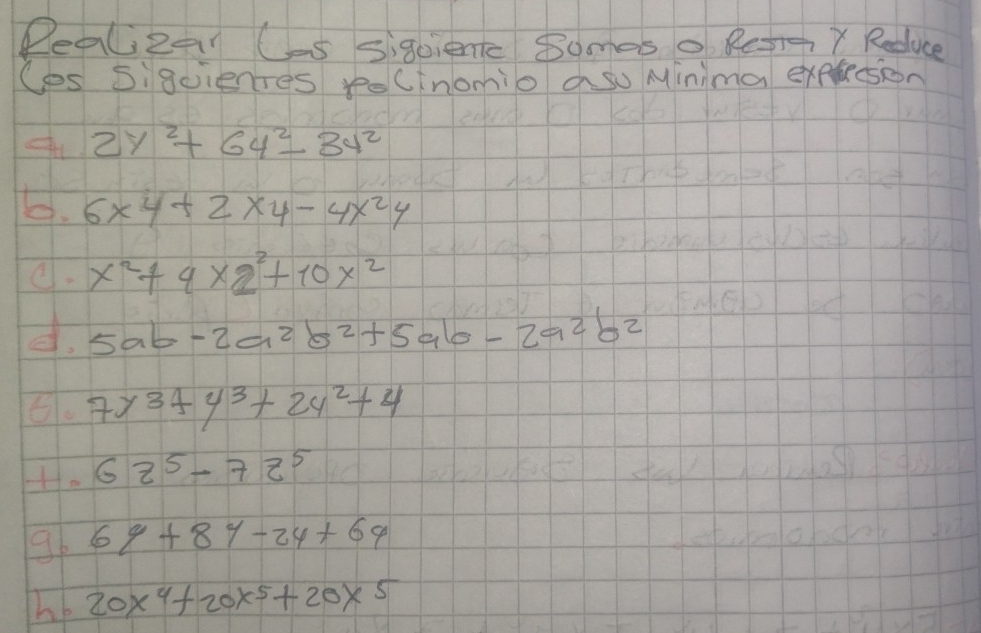 Realizar las siguiente Sumas o Resta y Reduce
los siguientes polinomio a su Minima expresion
a. 2y² + 6y² - 3y²
b. 6xy + 2xy - 4x²y
c. x² + 9x² + 10x²
d. 5ab - 2a²b² + 5ab - 2a²b²
e. 7y³ + y³ + 2y² + y
f. 6z⁵ - 7z⁵
g. 6y + 8y - 2y + 6y
h. 20x⁴ + 20x⁵ + 20x⁵